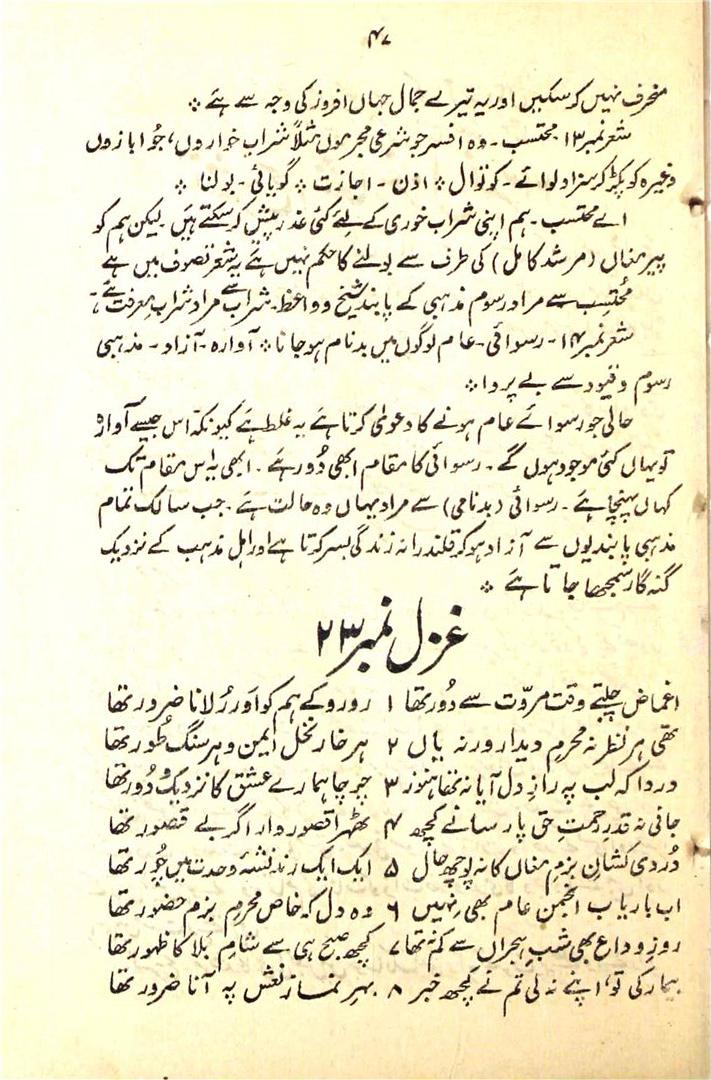 ۴۷
منحرف نہیں کر سکیں اور یہ تیرے جمال جہاں افروز کی وجہ سے ہے ⁘
شعر نمبر ۱۳ محتسب۔ وہ افسر جو شرعی مجرموں مثلاً شراب خواروں، جُوا بازوں
وغیرہ کو پکڑ کر سزا دلوائے۔ کوتوال ⁘ اذن۔ اجازت ⁘ گویائی۔ بولنا ⁘
اے محتسب۔ ہم اپنی شراب خوری کے لئے کئی عذر پیش کر سکتے ہیں۔ لیکن ہم کو
پیر مغاں (مرشد کامل) کی طرف سے بولنے کا حکم نہیں ہے یہ شعر تصوف میں ہے
محتسب سے مراد رسوم مذہبی کے پابند شیخ و واعظ۔ شراب سے مراد شراب معرفت ہے۔
شعر نمبر ۱۴۔ رسوائی۔ عام لوگوں میں بدنام ہو جانا ⁘ آوارہ۔ آزاد۔ مذہبی
رسوم و قیود سے بے پروا ⁘
حالی جو رسوائے عام ہونے کا دعویٰ کرتا ہے یہ غلط ہے کیونکہ اس جیسے آوارہ
تو یہاں کئی موجود ہوں گے۔ رسوائی کا مقام ابھی دُور ہے۔ ابھی یہ اس مقام تک
کہاں پہنچا ہے۔ رسوائی (بدنامی) سے مراد یہاں وہ حالت ہے۔ جب سالک تمام
مذہبی پابندیوں سے آزاد ہو کر قلندرانہ زندگی بسر کرتا ہے اور اہل مذہب کے نزدیک
گنہ گار سمجھا جاتا ہے ⁘
غزل نمبر ۲۳
اغماض چلتے وقت مروّت سے دُور تھا ۱ رو رو کے ہم کو اَور رُلانا ضرور تھا
تھی ہر نظر نہ محرم دیدار ورنہ یاں ۲ ہر خار نخل ایمن و ہر سنگ طُور تھا
دردا کہ لب پہ رازِ دل آیا نہ تھا ہنوز ۳ چرچا ہمارے عشق کا نزدیک و دُور تھا
جانی نہ قدر رحمتِ حق پارسا نے کچھ ۴ ٹھہرا قصور وار اگر بے قصور تھا
دُردی کشانِ بزمِ مغاں کا نہ پوچھ حال ۵ ایک ایک رند نشۂ وحدت میں چُور تھا
اب باریاب انجمن عام بھی نہیں ۶ وہ دل کہ خاص محرم بزم حضور تھا
روزِ وداع بھی شبِ ہجراں سے کم نہ تھا ۷ کچھ صبح ہی سے شامِ بَلا کا ظہور تھا
بیمار کی تو، اپنے نہ لی تم نے کچھ خبر ۸ بہرِ نماز نعش پہ آنا ضرور تھا